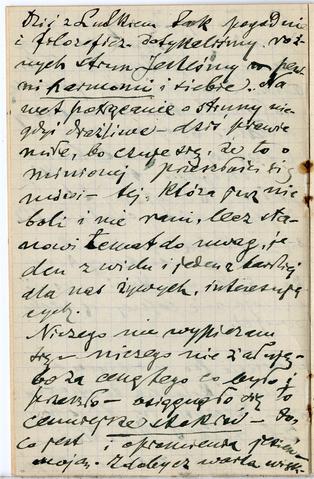 Dziś z Ludkiem tak pogodni
i filozoficz. Dotykaliśmy róż-
nych strun. Jesteśmy w peł-
ni harmonii i siebie. Na
wet potrącanie o struny nie
gdyś drażliwe – dziś prawie
miłe, bo czuje się, że to o
minionej przeszłości się
mówi – tej, która już nie
boli i nie rani, lecz sta-
nowi temat do uwag, je
den z wielu i jeden z bardziej
dla nas żywych, interesują
cych.
Niczego nie wypieram
się – niczego nie żałuję
bo za cenę tego co było i
przeszło – osiągnęło się to
cenniejsze
co jest i opromienia jesień
moją. Zdobycz warta